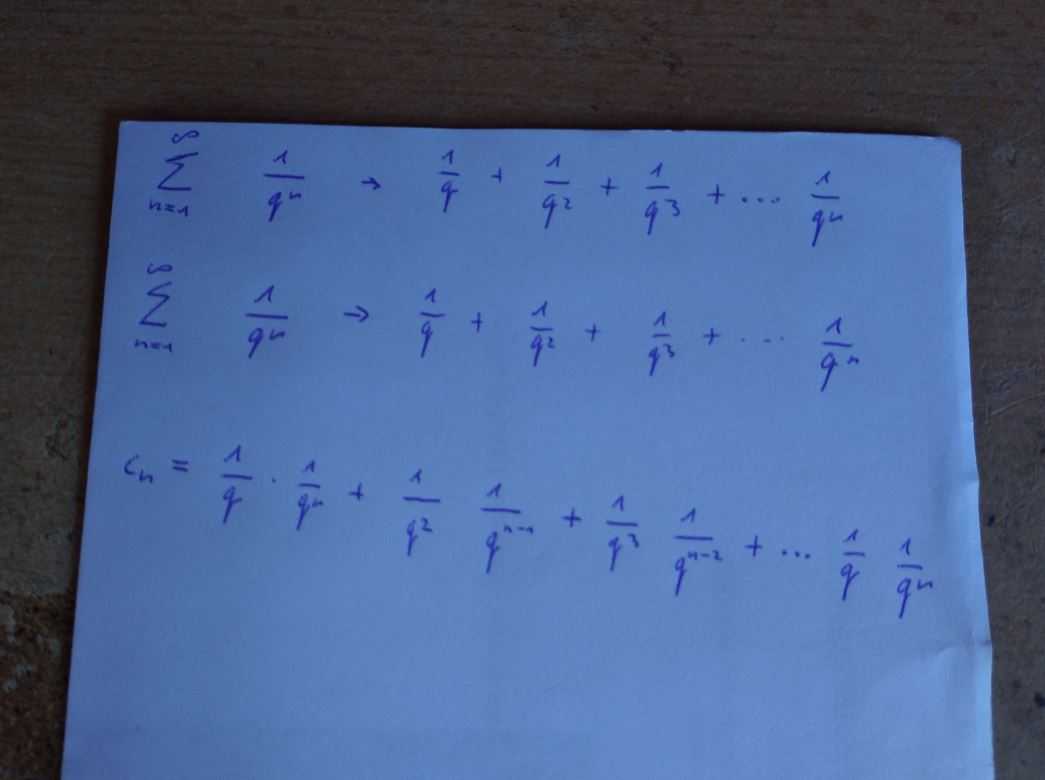 ∑_{n=1}^{∞} 1/q^n → 1/q + 1/q^2 + 1/q^3 + ... 1/q^n
∑_{n=1}^{∞} 1/q^n → 1/q + 1/q^2 + 1/q^3 + ... 1/q^n
c_n = 1/q · 1/q^n + 1/q^2 1/q^{n-1} + 1/q^3 1/q^{n-2} + ... 1/q 1/q^n